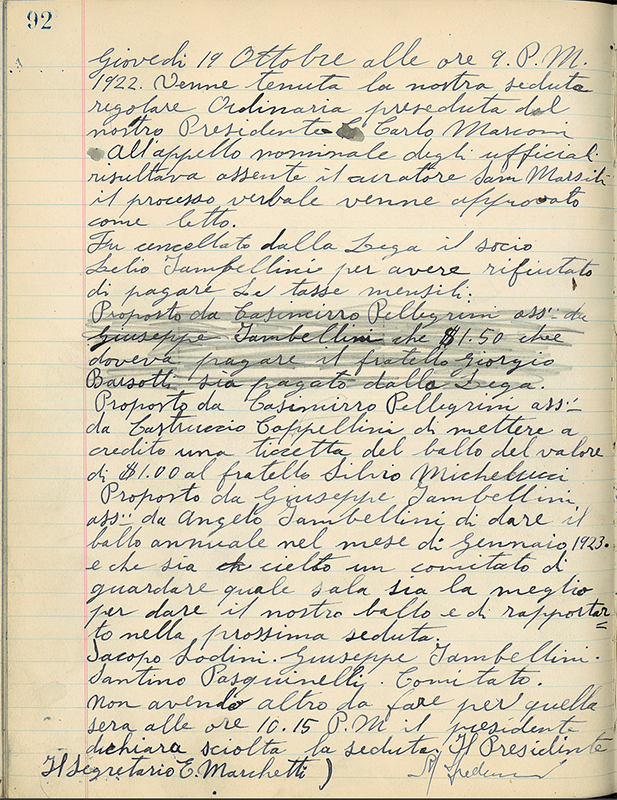 92
Giovedi 19 Ottobre alle ore 9. P.M.
1922. Venne tenuta la nostra seduta
regolare Ordinaria preseduta dal
nostro Presidente Carlo Marconi
All'appello nominale degli ufficiali
risultava assente il curatore Sam Marsili
il processo verbale venne approvato
come letto.
Fu cencellato dalla Lega il socio
Lelio Tambellini per avere rifiutato
di pagare Le tasse mensili.
Proposto da Casimirro Pellegrini ass: da
Giuseppe Tambellini che $1.50 che
doveva pagare il fratello Giorgio
Barsotti sia pagato dalla Lega.
Proposto da Casimirro Pellegrini ass:
da Castruccio Cappellini di mettere a
credito una ticcetta del ballo del valore
di $1.00 al fratello Silvio Michelucci
Proposto da Giuseppe Tambellini
ass: da Angelo Tambellini di dare il
ballo annuale nel mese di Gennaio 1923.
e che sia ch cielto un comitato di
guardare quale sala sia la meglio
per dare il nostro ballo e di rapportar=
to nella prossima seduta.
Jacopo Lodini. Giuseppe Tambellini.
Santino Pasquinelli. Comitato.
Non avendo altro da fare per quella
sera alle ore 10.15 P.M il presidente
dichiara sciolta la seduta. Il Presidente
Il Segretario E. Marchetti )